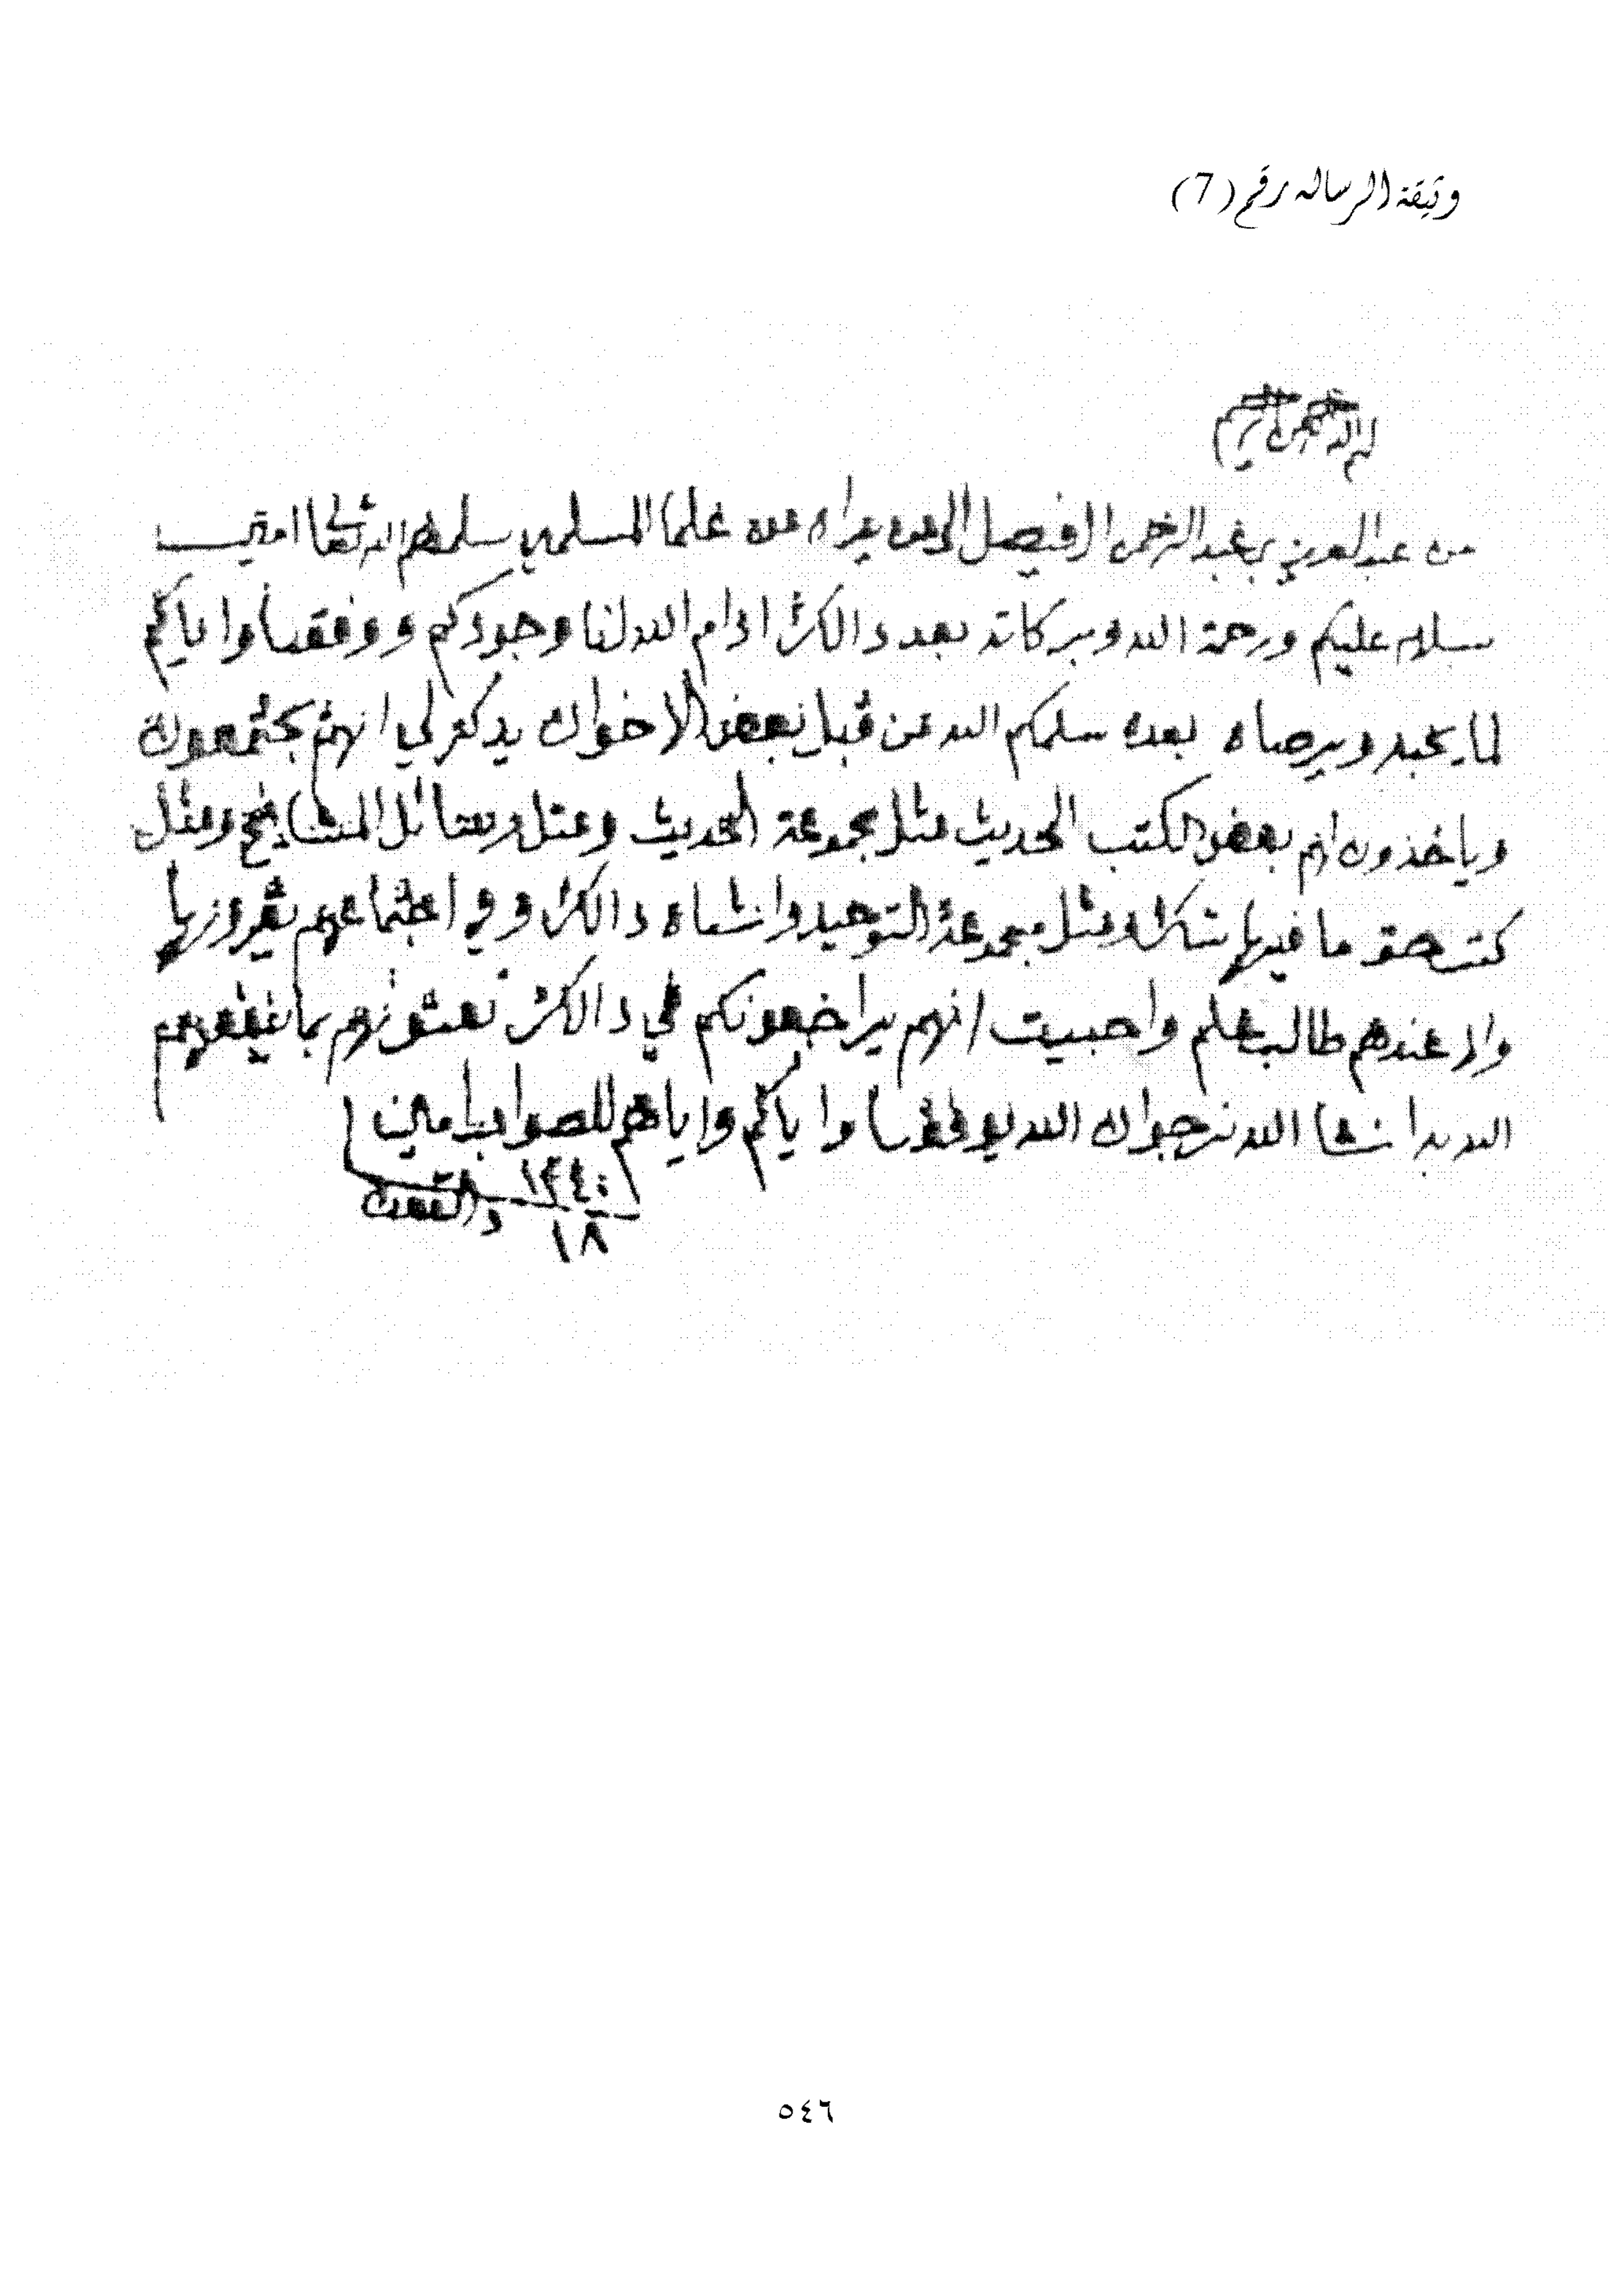 وثيقة الرساله رقم (7)
بسم الله الرحمن الرحيم
من عبدالعزيز بن عبدالرحمن ال فيصل الى من يراه من علما المسلمين سلمهم الله تعالى امين
سلام عليكم ورحمة الله وبركاته بعد دالك ادام الله لنا وجودكم ووفقنا واياكم
لما يحبه ويرضاه بعده سلمكم الله من قبل بعض الاخوان يذكر لي انهم يجتمعون
وياخذون لهم بعض الكتب الحديث مثل مجموعة الحديث ومثل رسائل المشايخ ومثل
كتب حق ما فيها شك ومثل مجموعة التوحيد وانشاه دالك وفي اجتماعهم يقرونها
ولا عندهم طالب علم واحبيت انهم يراجعونكم في دالك تعينونهم بما ينفعهم
الله به انشا الله نرجوا ان الله يوفقنا واياكم واياهم للصواب امين
١٣٤٠
١٨ دالقعده
٥٤٦